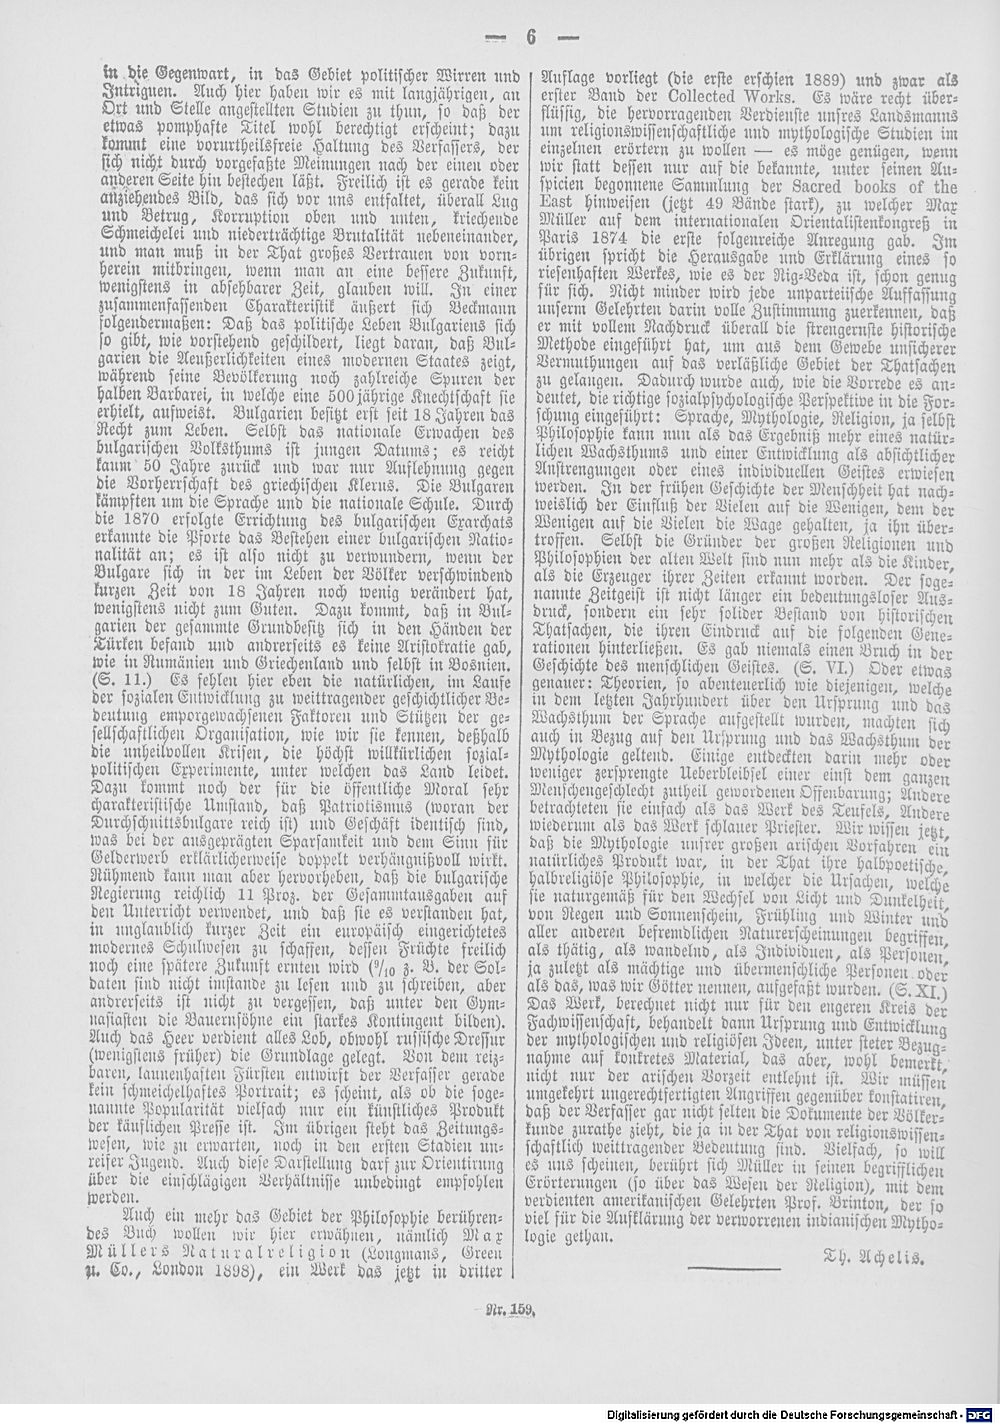 — 6 —
in die Gegenwart, in das Gebiet politischer Wirren und
Intriguen. Auch hier haben wir es mit langjährigen, an
Ort und Stelle angestellten Studien zu thun, so daß der
etwas pomphafte Titel wohl berechtigt erscheint; dazu
kommt eine vorurtheilsfreie Haltung des Verfassers, der
sich nicht durch vorgefaßte Meinungen nach der einen oder
anderen Seite hin bestechen läßt. Freilich ist es gerade kein
anziehendes Bild, das sich vor uns entfaltet, überall Lug
und Betrug, Korruption oben und unten, kriechende
Schmeichelei und niederträchtige Brutalität nebeneinander,
und man muß in der That großes Vertrauen von vorn-
herein mitbringen, wenn man an eine bessere Zukunft,
wenigstens in absehbarer Zeit, glauben will. In einer
zusammenfassenden Charakteristik äußert sich Beckmann
folgendermaßen: Daß das politische Leben Bulgariens sich
so gibt, wie vorstehend geschildert, liegt daran, daß Bul-
garien die Aeußerlichkeiten eines modernen Staates zeigt,
während seine Bevölkerung noch zahlreiche Spuren der
halben Barbarei, in welche eine 500jährige Knechtschaft sie
erhielt, aufweist. Bulgarien besitzt erst seit 18 Jahren das
Recht zum Leben. Selbst das nationale Erwachen des
bulgarischen Volksthums ist jungen Datums; es reicht
kaum 50 Jahre zurück und war nur Auflehnung gegen
die Vorherrschaft des griechischen Klerus. Die Bulgaren
kämpften um die Sprache und die nationale Schule. Durch
die 1870 erfolgte Errichtung des bulgarischen Exarchats
erkannte die Pforte das Bestehen einer bulgarischen Natio-
nalität an; es ist also nicht zu verwundern, wenn der
Bulgare sich in der im Leben der Völker verschwindend
kurzen Zeit von 18 Jahren noch wenig verändert hat,
wenigstens nicht zum Guten. Dazu kommt, daß in Bul-
garien der gesammte Grundbesitz sich in den Händen der
Türken befand und andrerseits es keine Aristokratie gab,
wie in Rumänien und Griechenland und selbst in Bosnien.
(S. 11.) Es fehlen hier eben die natürlichen, im Laufe
der sozialen Entwicklung zu weittragender geschichtlicher Be-
deutung emporgewachsenen Faktoren und Stützen der ge-
sellschaftlichen Organisation, wie wir sie kennen, deßhalb
die unheilvollen Krisen, die höchst willkürlichen sozial-
politischen Experimente, unter welchen das Land leidet.
Dazu kommt noch der für die öffentliche Moral sehr
charakteristische Umstand, daß Patriotismus (woran der
Durchschnittsbulgare reich ist) und Geschäft identisch sind,
was bei der ausgeprägten Sparsamkeit und dem Sinn für
Gelderwerb erklärlicherweise doppelt verhängnißvoll wirkt.
Rühmend kann man aber hervorheben, daß die bulgarische
Regierung reichlich 11 Proz. der Gesammtausgaben auf
den Unterricht verwendet, und daß sie es verstanden hat,
in unglaublich kurzer Zeit ein europäisch eingerichtetes
modernes Schulwesen zu schaffen, dessen Früchte freilich
noch eine spätere Zukunft ernten wird (9/10 z. B. der Sol-
daten sind nicht imstande zu lesen und zu schreiben, aber
andrerseits ist nicht zu vergessen, daß unter den Gym-
nasiasten die Bauernsöhne ein starkes Kontingent bilden).
Auch das Heer verdient alles Lob, obwohl russische Dressur
(wenigstens früher) die Grundlage gelegt. Von dem reiz-
baren, launenhaften Fürsten entwirft der Verfasser gerade
kein schmeichelhaftes Portrait; es scheint, als ob die soge-
nannte Popularität vielfach nur ein künstliches Produkt
der käuflichen Presse ist. Im übrigen steht das Zeitungs-
wesen, wie zu erwarten, noch in den ersten Stadien un-
reifer Jugend. Auch diese Darstellung darf zur Orientirung
über die einschlägigen Verhältnisse unbedingt empfohlen
werden.
Auch ein mehr das Gebiet der Philosophie berühren-
des Buch wollen wir hier erwähnen, nämlich Max
Müllers Naturalreligion (Longmans, Green
u. Co., London 1898), ein Werk das jetzt in dritter
Auflage vorliegt (die erste erschien 1889) und zwar als
erster Band der Collected Works. Es wäre recht über-
flüssig, die hervorragenden Verdienste unsres Landsmanns
um religionswissenschaftliche und mythologische Studien im
einzelnen erörtern zu wollen — es möge genügen, wenn
wir statt dessen nur auf die bekannte, unter seinen Au-
spicien begonnene Sammlung der Sacred books of the
East hinweisen (jetzt 49 Bände stark), zu welcher Max
Müller auf dem internationalen Orientalistenkongreß in
Paris 1874 die erste folgenreiche Anregung gab. Im
übrigen spricht die Herausgabe und Erklärung eines so
riesenhaften Werkes, wie es der Rig-Veda ist, schon genug
für sich. Nicht minder wird jede unparteiische Auffassung
unserm Gelehrten darin volle Zustimmung zuerkennen, daß
er mit vollem Nachdruck überall die strengernste historische
Methode eingeführt hat, um aus dem Gewebe unsicherer
Vermuthungen auf das verläßliche Gebiet der Thatsachen
zu gelangen. Dadurch wurde auch, wie die Vorrede es an-
deutet, die richtige sozialpsychologische Perspektive in die For-
schung eingeführt: Sprache, Mythologie, Religion, ja selbst
Philosophie kann nun als das Ergebniß mehr eines natür-
lichen Wachsthums und einer Entwicklung als absichtlicher
Anstrengungen oder eines individuellen Geistes erwiesen
werden. In der frühen Geschichte der Menschheit hat nach-
weislich der Einfluß der Vielen auf die Wenigen, dem der
Wenigen auf die Vielen die Wage gehalten, ja ihn über-
troffen. Selbst die Gründer der großen Religionen und
Philosophien der alten Welt sind nun mehr als die Kinder,
als die Erzeuger ihrer Zeiten erkannt worden. Der soge-
nannte Zeitgeist ist nicht länger ein bedeutungsloser Aus-
druck, sondern ein sehr solider Bestand von historischen
Thatsachen, die ihren Eindruck auf die folgenden Gene-
rationen hinterließen. Es gab niemals einen Bruch in der
Geschichte des menschlichen Geistes. (S. VI.) Oder etwas
genauer: Theorien, so abenteuerlich wie diejenigen, welche
in dem letzten Jahrhundert über den Ursprung und das
Wachsthum der Sprache aufgestellt wurden, machten sich
auch in Bezug auf den Ursprung und das Wachsthum der
Mythologie geltend. Einige entdeckten darin mehr oder
weniger zersprengte Ueberbleibsel einer einst dem ganzen
Menschengeschlecht zutheil gewordenen Offenbarung; Andere
betrachteten sie einfach als das Werk des Teufels, Andere
wiederum als das Werk schlauer Priester. Wir wissen jetzt,
daß die Mythologie unsrer großen arischen Vorfahren ein
natürliches Produkt war, in der That ihre halbpoetische,
halbreligiöse Philosophie, in welcher die Ursachen, welche
sie naturgemäß für den Wechsel von Licht und Dunkelheit,
von Regen und Sonnenschein, Frühling und Winter und
aller anderen befremdlichen Naturerscheinungen begriffen,
als thätig, als wandelnd, als Individuen, als Personen,
ja zuletzt als mächtige und übermenschliche Personen oder
als das, was wir Götter nennen, aufgefaßt wurden. (S. XI.)
Das Werk, berechnet nicht nur für den engeren Kreis der
Fachwissenschaft, behandelt dann Ursprung und Entwicklung
der mythologischen und religiösen Ideen, unter steter Bezug-
nahme auf konkretes Material, das aber, wohl bemerkt,
nicht nur der arischen Vorzeit entlehnt ist. Wir müssen
umgekehrt ungerechtfertigten Angriffen gegenüber konstatiren,
daß der Verfasser gar nicht selten die Dokumente der Völker-
kunde zurathe zieht, die ja in der That von religionswissen-
schaftlich weittragender Bedeutung sind. Vielfach, so will
es uns scheinen, berührt sich Müller in seinen begrifflichen
Erörterungen (so über das Wesen der Religion), mit dem
verdienten amerikanischen Gelehrten Prof. Brinton, der so
viel für die Aufklärung der verworrenen indianischen Mytho-
logie gethan.
Th. Achelis.
Nr. 159.
Digitalisierung gefördert durch die Deutsche Forschungsgemeinschaft - DFG